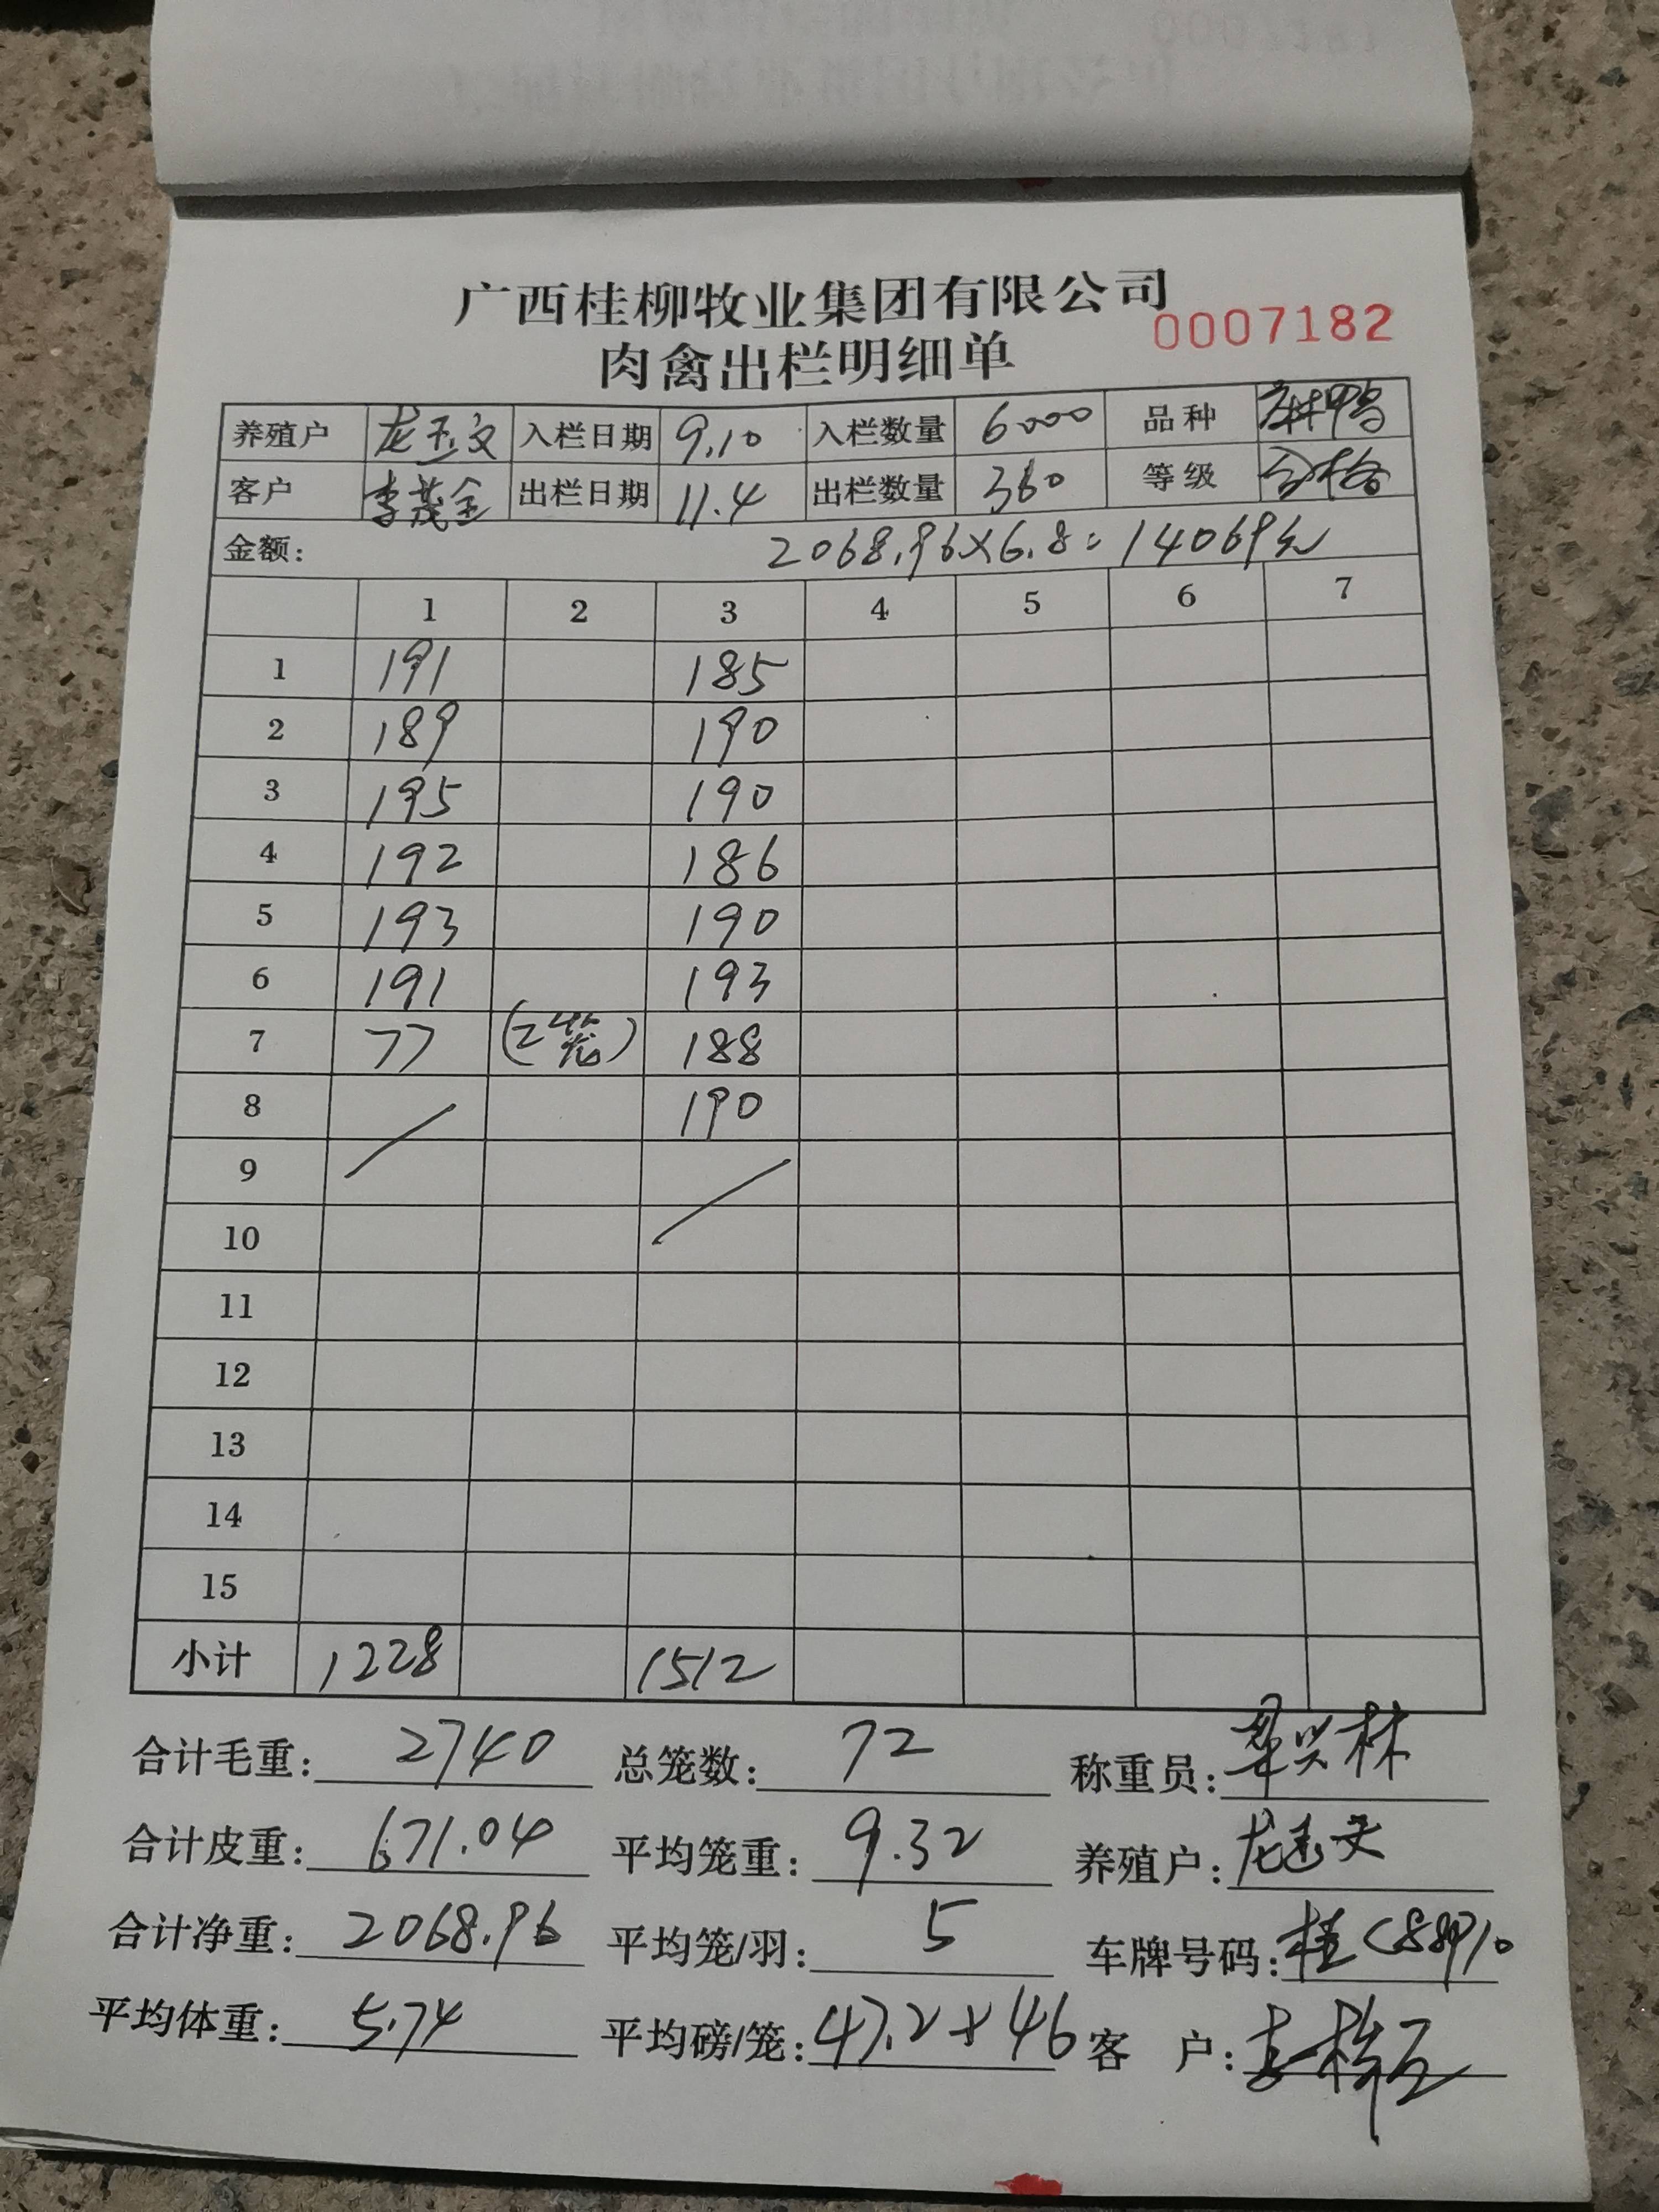 广西桂柳牧业集团有限公司
0007182
肉禽出栏明细单
养殖户 龙玉文 入栏日期 9.10 入栏数量 6000 品种 麻鸭
客户 李茂金 出栏日期 11.4 出栏数量 360 等级 合格
金额: 2068.96×6.8=14069元
1 2 3 4 5 6 7
1 191 185
2 189 190
3 195 190
4 192 186
5 193 190
6 191 193
7 77 (2笼) 188
8 190
9
10
11
12
13
14
15
小计 1228 1512
合计毛重: 2740 总笼数: 72 称重员:
合计皮重: 671.04 平均笼重: 9.32 养殖户: 龙玉文
合计净重: 2068.96 平均笼/羽: 5 车牌号码: 桂C88910
平均体重: 5.74 平均磅/笼: 47.2+46 客 户: